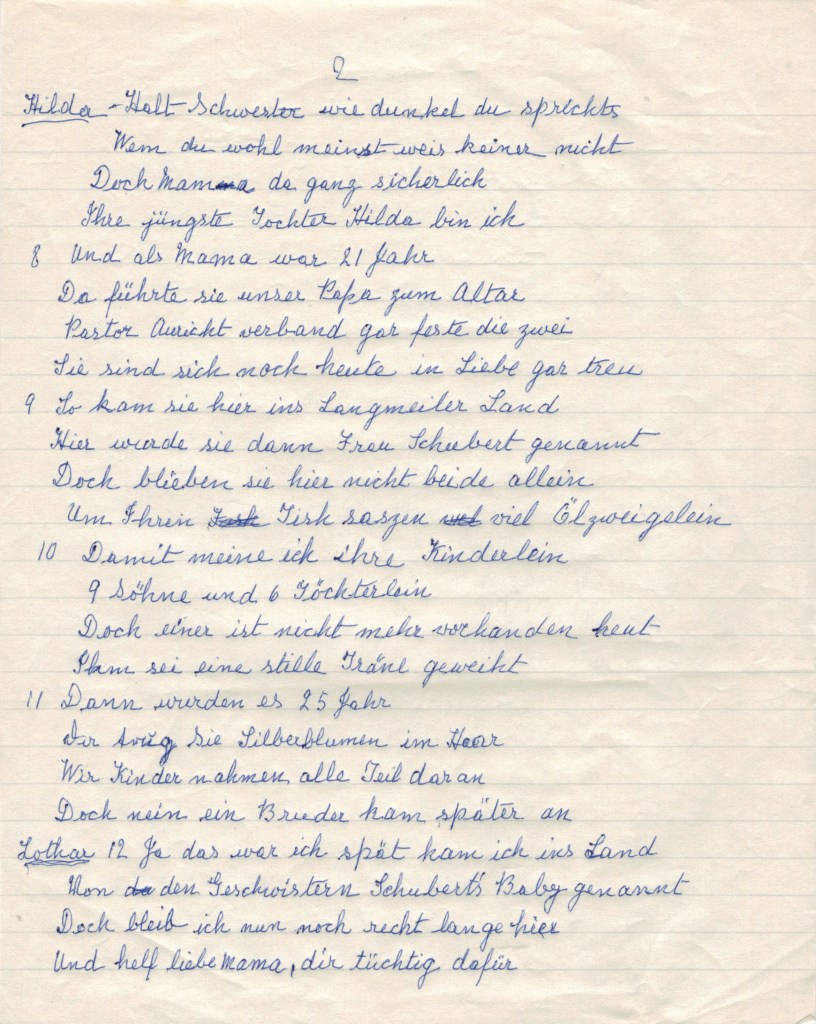 2
Hilda - Halt Schwester wie dunkel du sprichts
Wem du wohl meinst weis keiner nicht
Doch Mamma da ganz sicherlich
Ihre jüngste Tochter Hilda bin ich
8 Und als Mama war 21 Jahr
Da führte sie unser Papa zum Altar
Pastor Auricht verband gar feste die zwei
Sie sind sich noch heute in Liebe gar treu
9 So kam sie hier ins Langmeiler Land
Hier wurde sie dann Frau Schubert genannt
Doch blieben sie hier nicht beide allein
Um Ihren Tisk saszen viel Ölzweigelein
10 Damit meine ich ihre Kinderlein
9 Söhne und 6 Töchterlein
Doch einer ist nicht mehr vorhanden heut
Ihm sei eine stille Träne geweiht
11 Dann wurden es 25 Jahr
Da trug Sie Silberblumen im Haar
Wir Kinder nahmen alle Teil daran
Doch nein ein Bruder kam später an
Lothar 12 Ja das war ich spät kam ich ins Land
Von den Geschwistern Schubert's Baby genannt
Doch bleib ich nun noch recht lange hier
Und helf liebe Mama, dir tüchtig dafür